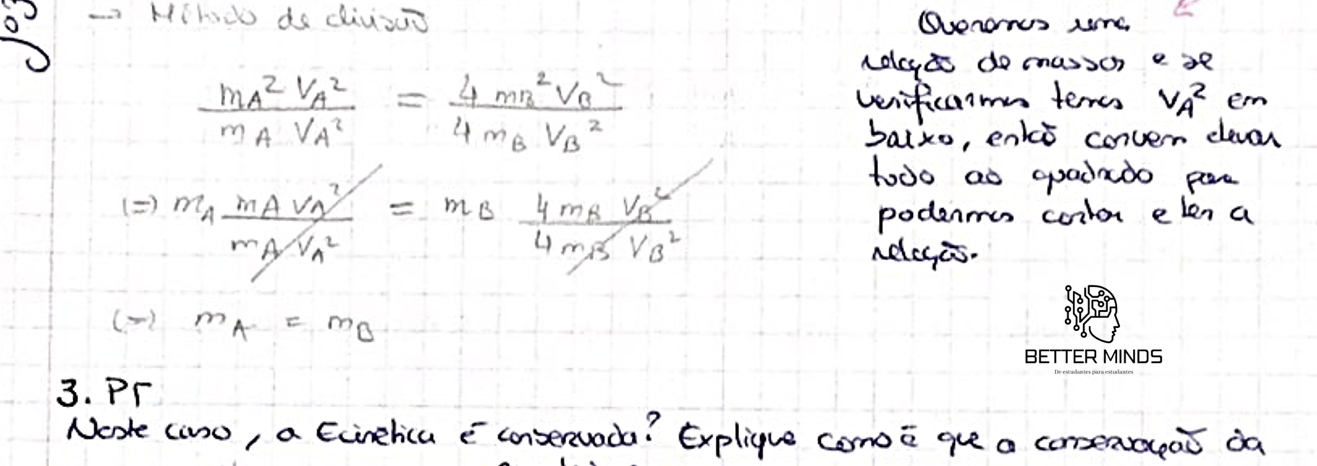 → Método de divisão
mA² VA² / mA VA² = 4 mB² VB² / 4 mB VB²
(=) mA mA VA² / mA VA² = mB 4 mB VB² / 4 mB VB²
(=) mA = mB
Queremos uma
relação de massas e se
verificarmos temos VA² em
baixo, entõ convem elevar
tudo ao quadrado para
podermos cortar e ter a
relação.
BETTER MINDS
De estudantes para estudantes
3. PΓ
Neste caso, a Ecinética é conservada? Explique como é que a conservação da